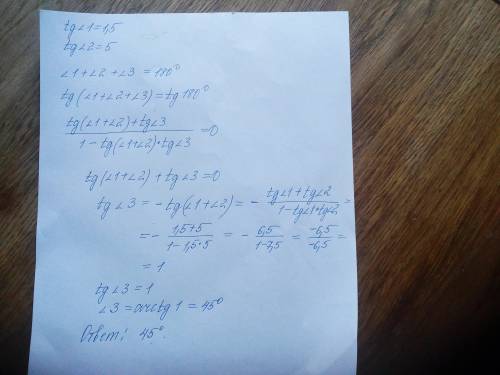 tg∠1=1,5
tg∠2=5
∠1+∠2+∠3 = 180°
tg(∠1+∠2+∠3)=tg 180°
tg(∠1+∠2)+tg∠3
1-tg(∠1+∠2)*tg∠3 =0
tg(∠1+∠2) + tg∠3 =0
tg∠3 = -tg(∠1+∠2) = - tg∠1+tg∠2 / 1-tg∠1*tg∠2 =
= - 1,5+5 / 1-1,5*5 = - 6,5 / 1-7,5 = -6,5 / -6,5 =
= 1
tg∠3 = 1
∠3 = arctg 1 = 45°
Ответ: 45°.